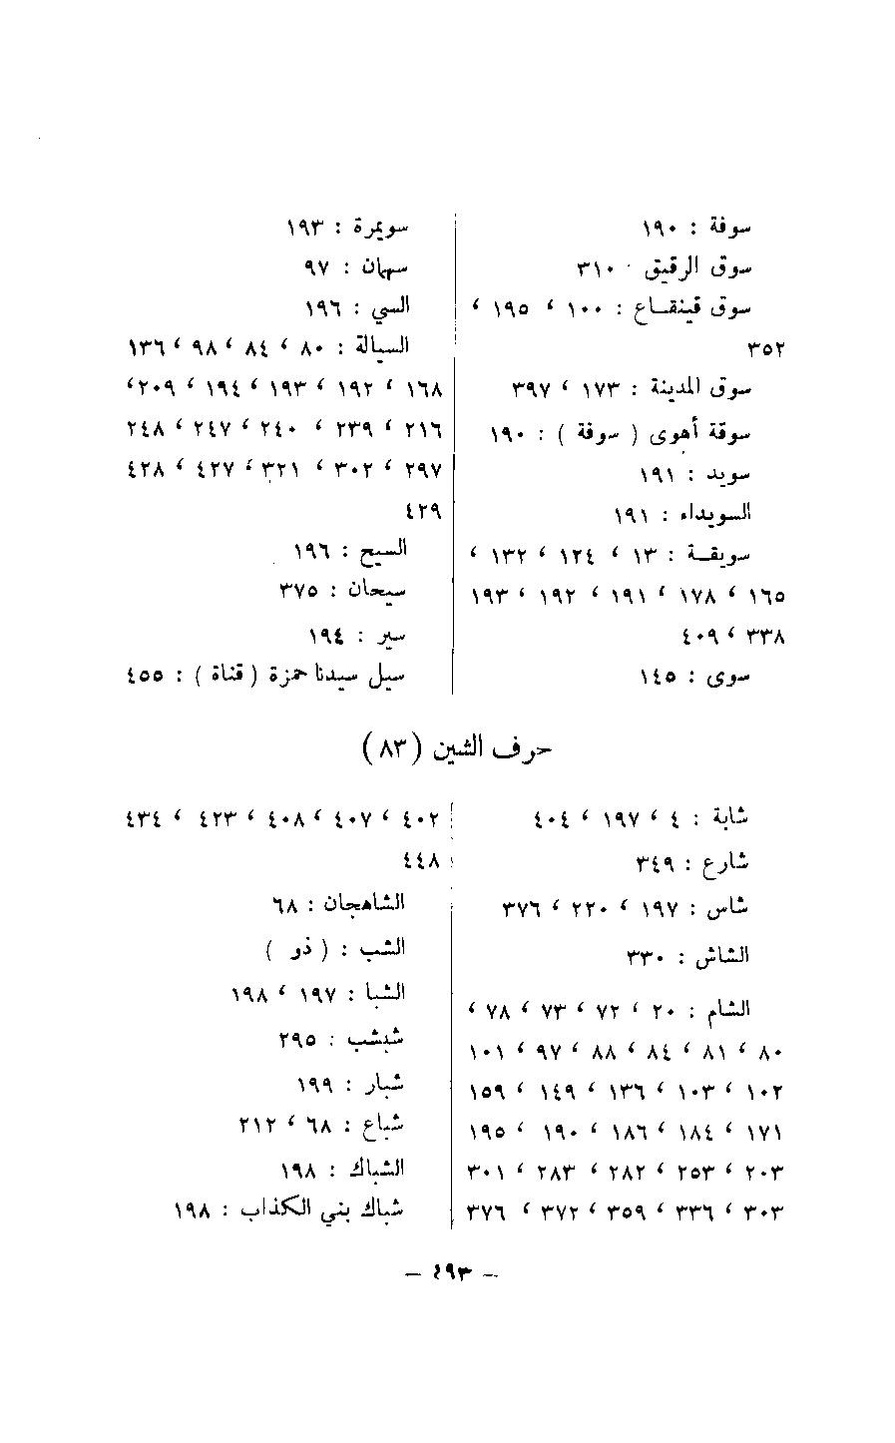 سوفة : ١٩٠
سوق الرقيق · ٣١٠
سوق قينقـاع : ١٠٠ ، ١٩٥ ،
٣٥٢
سوق المدينة : ١٧٣ ، ٣٩٧
سوقة أهوى ( سوفة ) : ١٩٠
سويد : ١٩١
السويداء : ١٩١
سويقـة : ١٣ ، ١٢٤ ، ١٣٢ ،
١٦٥ ، ١٧٨ ، ١٩١ ، ١٩٢ ، ١٩٣
٣٣٨ ، ٤٠٩
سوى : ١٤٥
سويمرة : ١٩٣
سهمان : ٩٧
السي : ١٩٦
السيالة : ٨٠ ، ٨٤ ، ٩٨ ، ١٣٦
١٦٨ ، ١٩٢ ، ١٩٣ ، ١٩٤ ، ٢٠٩،
٢١٦ ، ٢٣٩ ، ٢٤٠ ، ٢٤٧ ، ٢٤٨
٢٩٧ ، ٣٠٢ ، ٣٢١ ، ٤٢٧ ، ٤٢٨
٤٢٩
السيح : ١٩٦
سيحان : ٣٧٥
سير : ١٩٤
سيل سيدنا حمزة ( قناة ) : ٤٥٥
حرف الشين ( ٨٣ )
شابة : ٤ ، ١٩٧ ، ٤٠٤
شارع : ٣٤٩
شاس : ١٩٧ ، ٢٢٠ ، ٣٧٦
الشاش : ٣٣٠
الشام : ٢٠ ، ٧٢ ، ٧٣ ، ٧٨ ،
٨٠ ، ٨١ ، ٨٤ ، ٨٨ ، ٩٧ ، ١٠١
١٠٢ ، ١٠٣ ، ١٣٦ ، ١٤٩ ، ١٥٩
١٧١ ، ١٨٤ ، ١٨٦ ، ١٩٠ ، ١٩٥
٢٠٣ ، ٢٥٣ ، ٢٨٢ ، ٢٨٣ ، ٣٠١
٣٠٣ ، ٣٣٦ ، ٣٥٩ ، ٣٧٢ ، ٣٧٦
٤٠٢ ، ٤٠٧ ، ٤٠٨ ، ٤٢٣ ، ٤٣٤
٤٤٨
الشاهجان : ٦٨
الشب : ( ذو )
الشبا : ١٩٧ ، ١٩٨
شبشب : ٢٩٥
شبار : ١٩٩
شباع : ٦٨ ، ٢١٢
الشباك : ١٩٨
شباك بني الكذاب : ١٩٨
– ٤٩٣ –